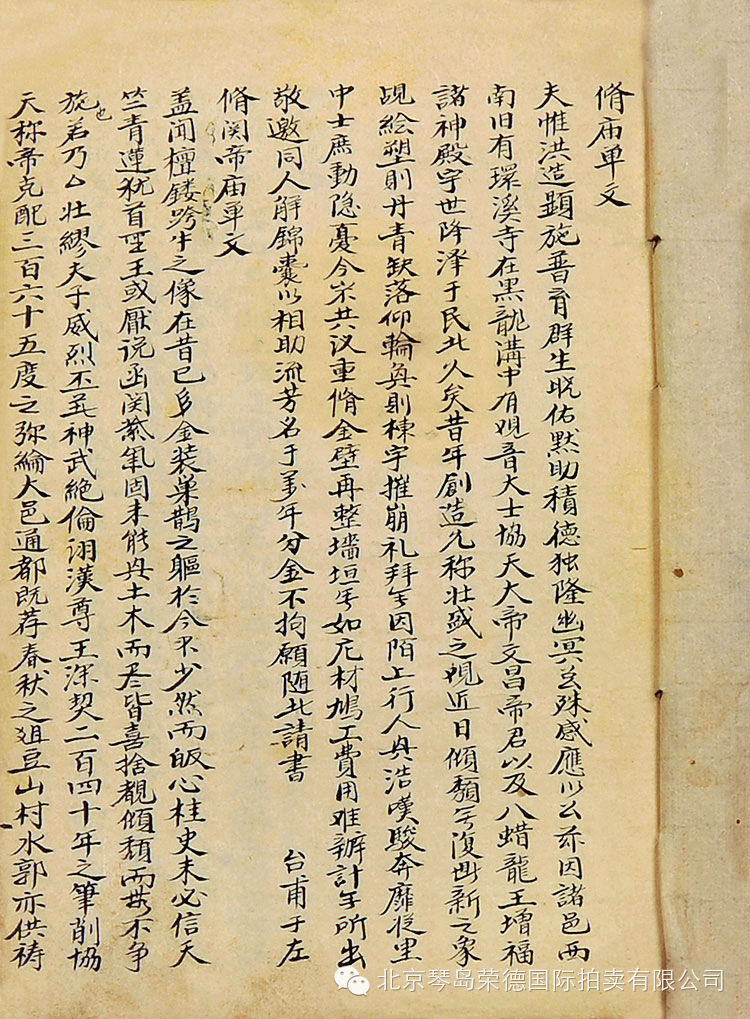 脩庙单文
夫惟洪造顕施普育群生既佑默助積德独隆幽冥
殊感應以公亦因諸邑西
南旧有環溪寺在黑龍溝中有观音大士協天大帝文昌帝君以及八蜡龍王增福
諸神殿宇世降泽于民北久矣昔年創造允称壮盛之观近日傾頹無復斯新之象
覘絵塑則丹青缺落仰輪奐則棟宇摧崩礼拜無因陌上行人興浩嘆駿奔靡從里
中士庶動隐憂今众共议重脩金壁再整墙垣無如庀材鳩工費用难辦計無所出
敬邀同人解錦囊以相助流芳名于万年分金不拘願随此請書 台甫于左
脩関帝庙单文
盖闻檀鏤跨牛之像在昔已多金装巢鹊之軀於今不少然而皈心柱史未必信天
竺青蓮犹首聖王或厭说函関紫氣固未能与土木而尽皆喜捨覩傾頹而毋不争
施也若乃公壮繆夫子威烈丕著神武絶倫翊漢尊王深契二百四十年之筆削協
天称帝克配三百六十五度之弥綸大邑通都既荐春秋之俎豆山村水郭亦供祷
北京琴岛荣德国际拍卖有限公司